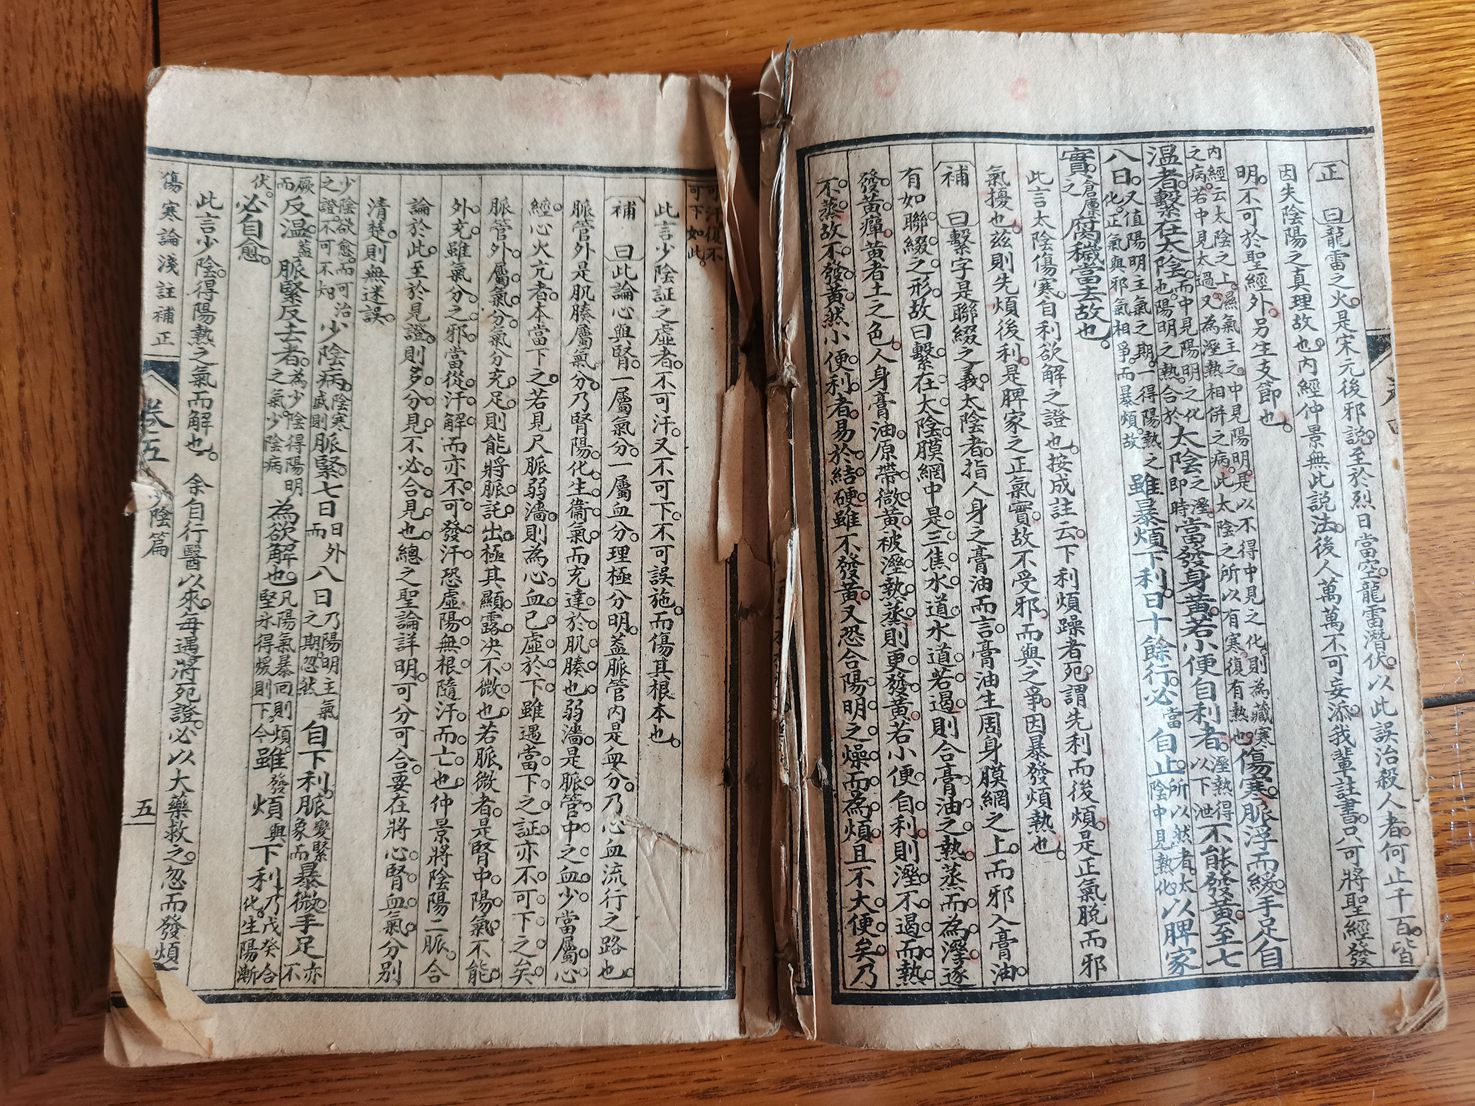 正 曰龍雷之火是宋元後邪說至於烈日當空龍雷潛伏以此誤治殺人者何止千百皆
因失陰陽之真理故也內經仲景無此說法後人萬萬不可妄添我輩註書只可將聖經發
明不可於聖經外另生支節也
內經云太陰之上濕氣主之中見陽明是以不得中見之化則為藏寒
之病若中見太過又為溼熱相併之病此太陰之所以有寒復有熱也傷寒脈浮而緩手足自
溫者繫在太陰也陽明之熱合於太陰之溼即時當發身黃若小便自利者以下泄不能發黃至七
八日又值陽明王氣之期一得陽熱之雖暴煩下利日十餘行必當自止所以然者太以脾家
化正氣與邪氣相爭而暴煩故陰中見熱化
實之倉廩腐穢當去故也
此言太陰傷寒自利欲解之證也按成註云下利煩躁者死謂先利而後煩是正氣脫而邪
氣擾也茲則先煩後利是脾家之正氣實故不受邪而與之爭因暴發煩熱也
補 曰繫字是聯綴之義太陰者指人身之膏油而言膏油生周身膜網之上而邪入膏油
有如聯綴之形故曰繫在太陰膜網中是三焦水道水道若遏則合膏油之熱蒸而為溼遂
發黃癉黃者土之色人身膏油原帶微黃被溼熱蒸則更發黃若小便自利則溼不遏而熱
不蒸故不發黃然小便利者易於結硬雖不發黃又恐合陽明之燥而為煩且不大便矣乃
可汗復不
可下如此
此言少陰証之虛者不可汗又不可下不可誤施而傷其根本也
補 曰此論心與腎一屬氣分一屬血分理極分明蓋脈管內是血分乃心血流行之路也
脈管外是肌腠屬氣分乃腎陽化生衞氣而充達於肌腠也弱濇是脈管中之血少當屬心
經心火亢者本當下之若見尺脈弱濇則為心血已虛於下雖遇當下之証亦不可下之矣
脈管外屬氣分氣分充足則能將脈託出極其顯露決不微也若脈微者是腎中陽氣不能
外充雖氣分之邪當從汗解而亦不可發汗恐虛陽無根隨汗而亡也仲景將陰陽二脈合
論於此至於見證則多分見不必合見也總之聖論詳明可分可合要在將心腎血氣分別
清楚則無迷誤
少陰欲愈而可治
之證不可不知少陰病陰寒盛則脈緊七日而日外八日乃陽明主氣之期忽然自下利脈變緊象而暴微手足亦
厥而反溫蓋脈緊反去者為少陰得陽明之氣少陰病為欲解也凡陽氣暴回則煩堅氷得煖則下今雖發煩與下利乃戊癸合化生陽漸不
伏必自愈
此言少陰得陽熱之氣而解也 余自行醫以來每遇將死證必以大藥救之忽而發煩
傷寒論淺註補正 卷五 陰篇 五